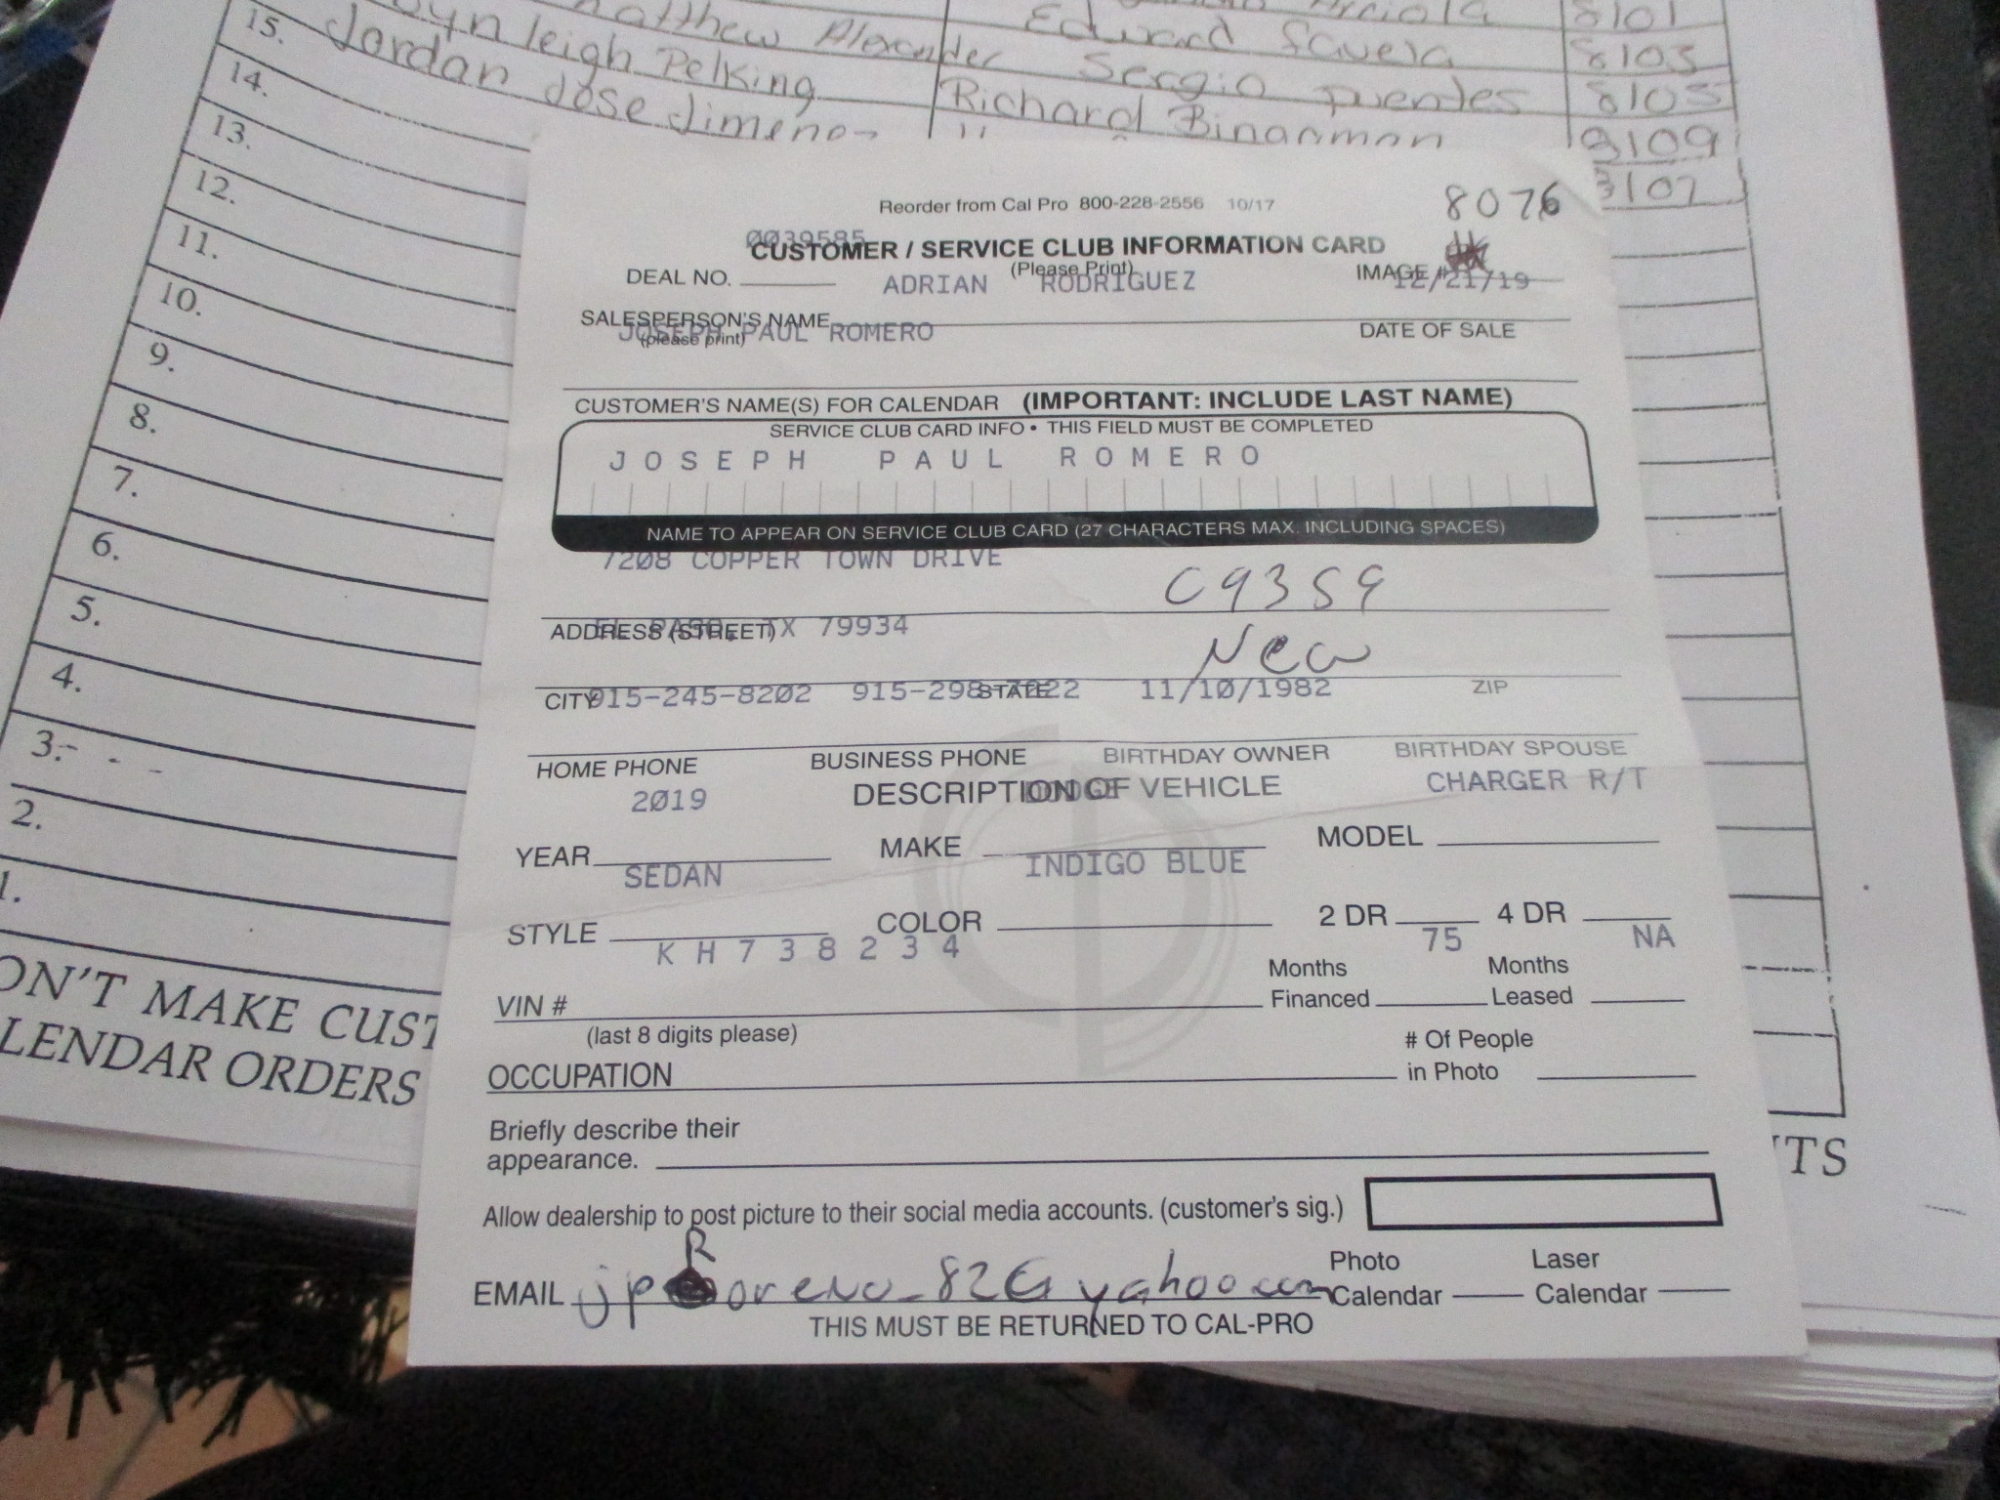 15. Jordan Jose Jimeno
leigh Pelking
Matthew Alexander
Edward
Sergio Puentes
Richard Bingaman
8101
8103
8105
8109
8107
14.
13.
12.
11.
10.
9.
8.
7.
6.
5.
4.
3.
2.
1.
ON'T MAKE CUST
LENDAR ORDERS
TS
Reorder from Cal Pro 800-228-2556 10/17
8076
0039585
CUSTOMER / SERVICE CLUB INFORMATION CARD
(Please Print)
DEAL NO. ADRIAN RODRIGUEZ IMAGE # 12/21/19
SALESPERSON'S NAME DATE OF SALE
(please print)
JOSEPH PAUL ROMERO
CUSTOMER'S NAME(S) FOR CALENDAR (IMPORTANT: INCLUDE LAST NAME)
SERVICE CLUB CARD INFO • THIS FIELD MUST BE COMPLETED
JOSEPH PAUL ROMERO
NAME TO APPEAR ON SERVICE CLUB CARD (27 CHARACTERS MAX. INCLUDING SPACES)
7208 COPPER TOWN DRIVE
C9359
ADDRESS (STREET)
EL PASO, TX 79934
New
CITY STATE ZIP
915-245-8202 915-298-7022 11/10/1982
HOME PHONE BUSINESS PHONE BIRTHDAY OWNER BIRTHDAY SPOUSE
DESCRIPTION OF VEHICLE
2019 DODGE CHARGER R/T
YEAR MAKE MODEL
SEDAN INDIGO BLUE
STYLE COLOR 2 DR 4 DR
KH738234 75 NA
VIN # Months Financed Months Leased
(last 8 digits please)
OCCUPATION # Of People in Photo
Briefly describe their
appearance.
Allow dealership to post picture to their social media accounts. (customer's sig.)
R
EMAIL Photo Calendar Laser Calendar
THIS MUST BE RETURNED TO CAL-PRO